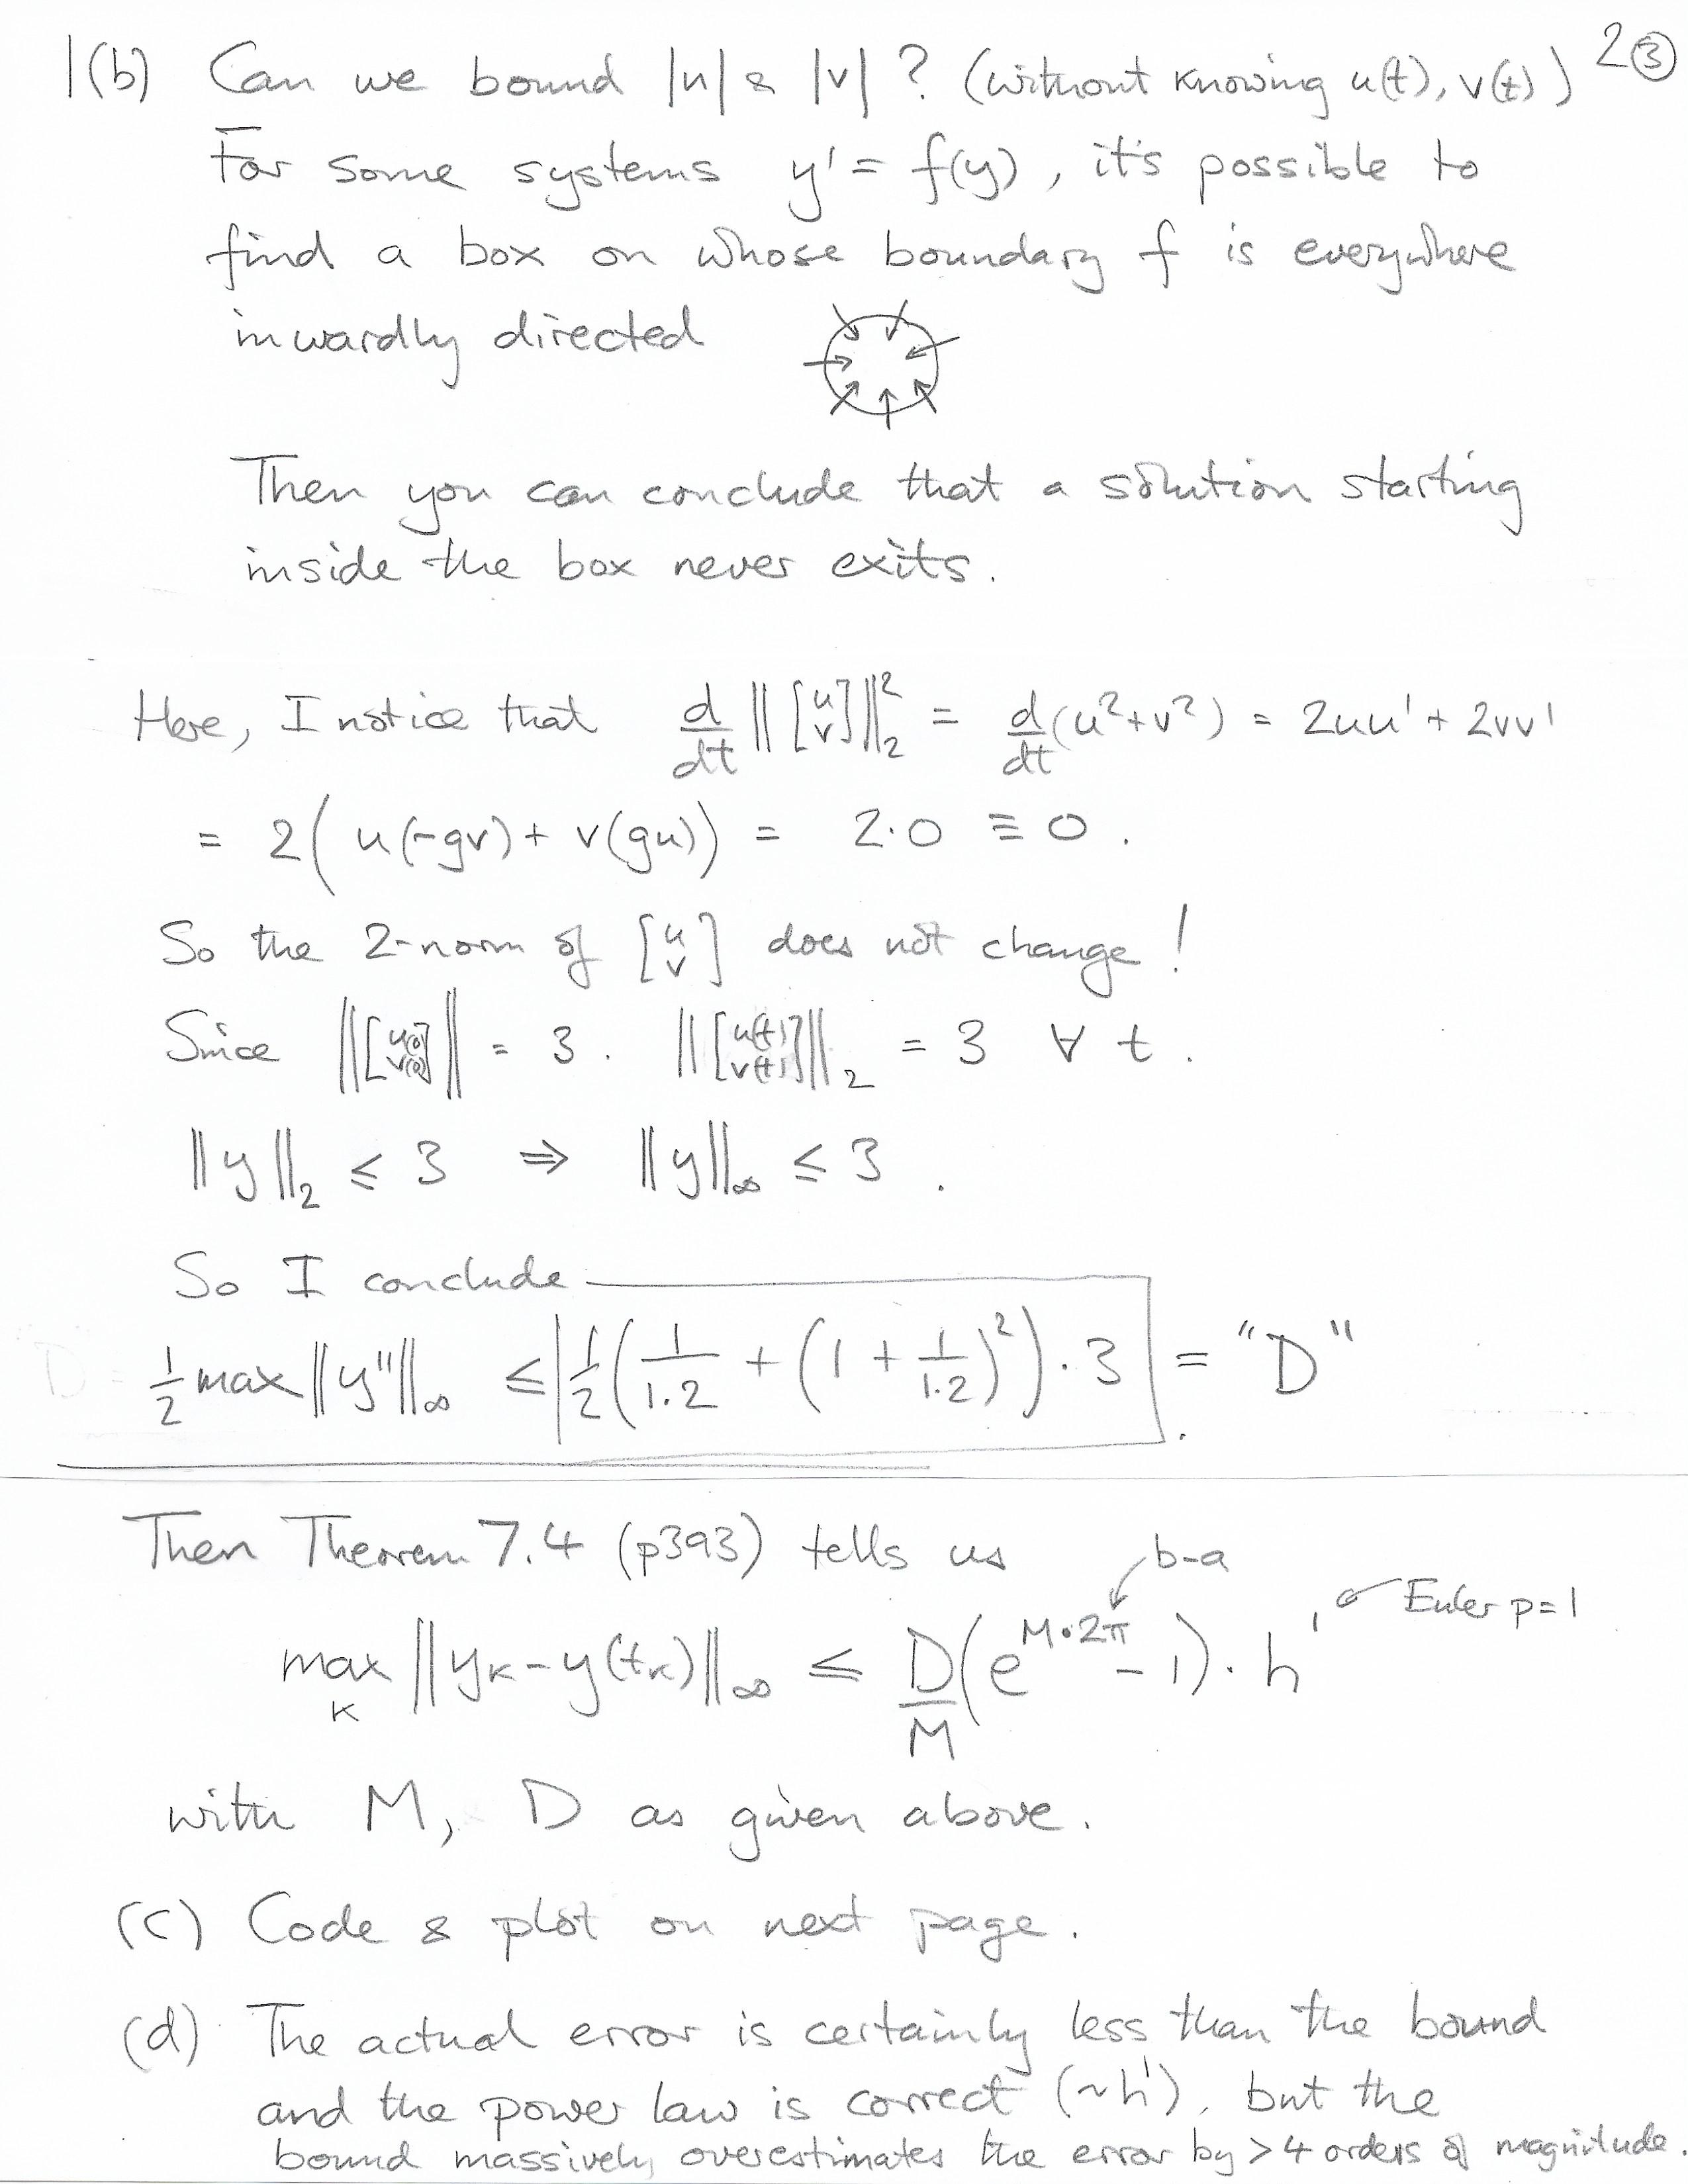 1(b) Can we bound |u| & |v| ? (without knowing u(t), v(t)) 2 ③
For some systems y' = f(y), it's possible to
find a box on whose boundary f is everywhere
inwardly directed
Then you can conclude that a solution starting
inside the box never exits.
Here, I notice that d/dt ||[u v]||₂² = d/dt (u²+v²) = 2uu' + 2vv'
= 2( u(-gv) + v(gu)) = 2·0 ≡ 0 .
So the 2-norm of [u v] does not change!
Since ||[u(0) v(0)]|| = 3 . ||[u(t) v(t)]||₂ = 3 ∀ t .
||y||₂ ≤ 3 ⇒ ||y||∞ ≤ 3 .
So I conclude
D = ½ max ||y''||∞ ≤ ½(1/1.2 + (1 + 1/1.2)²)·3 = "D" .
Then Theorem 7.4 (p393) tells us b-a
max_k ||y_k - y(t_k)||∞ ≤ D/M (e^{M·2π} - 1)·h¹ Euler p=1
with M, D as given above.
(c) Code & plot on next page.
(d) The actual error is certainly less than the bound
and the power law is correct (~h¹), but the
bound massively overestimates the error by >4 orders of magnitude.